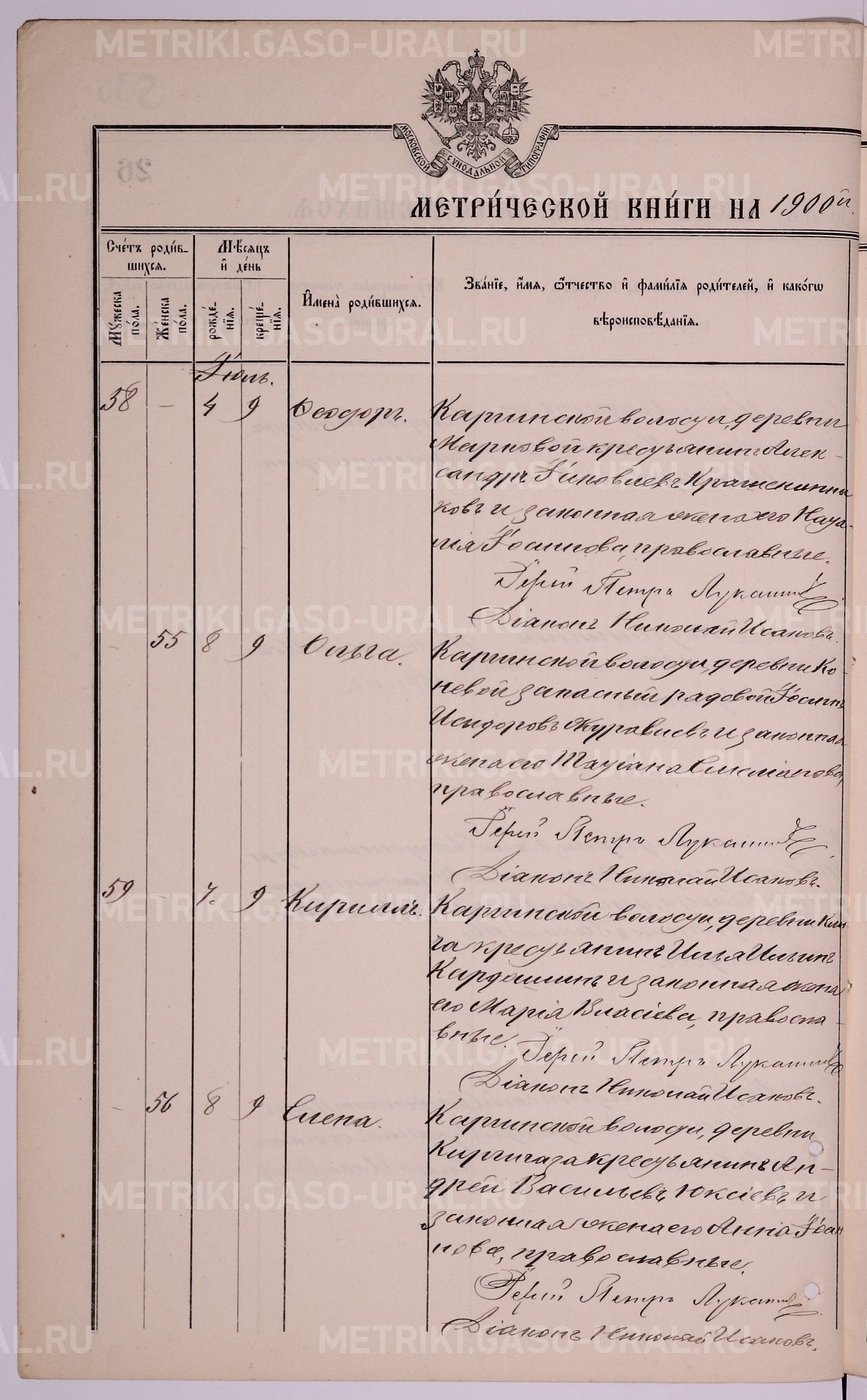 METRIKI.GASO-URAL.RU
МОСКОВСКОЙ СѴНОДАЛЬНОЙ ТИПОГРАФІИ
МЕТРИ́ЧЕСКОЙ КНИ́ГИ НА 1900й.
Сче́тъ роди́в-
шихся.
Мѣ́сяцъ
и҆ де́нь
Мꙋ́жеска
по́ла.
Же́нска
по́ла.
рожде́-
нїѧ.
креще́-
нїѧ.
И҆мена̀ роди́вшихся.
Зва́нїе, и҆́мѧ, ѻ҆́тчество и҆ фами́лїѧ роди́телей, и҆ како́гѡ
вѣроисповѣ́данїѧ.
Іюль.
58 — 4 9 Ѳеодоръ.
Каргинской волости, деревни
Марковой крестьянинъ Алек-
сандръ Іаковлевъ Крашенинни
ковъ и законная жена его Ната
лія Іосифова, православные.
Іерей Петръ Лукашин
Діаконъ Николай Исаковъ.
- 55 8 9 Ольга.
Каргинской волости, деревни Ко
невой запасный рядовой Іосифъ
Исидоровъ Журавлевъ и законная
жена его Татіана
православные.
Іерей Петръ Лукашин
Діаконъ Николай Исаковъ.
59 7. 9 Кириллъ.
Каргинской волости, деревни
крестьянинъ Илья Ильинъ
Кардашинъ и законная жена
его Марія Власіева, правосла-
вные.
Іерей Петръ Лукашин
Діаконъ Николай Исаковъ.
- 56 8 9 Елена.
Каргинской волости, деревни
Киргишана крестьянинъ Ан-
дрей Васильевъ Юксіевъ и
законная жена его Анна Іоан
нова, православные.
Іерей Петръ Лукашин
Діаконъ Николай Исаковъ.